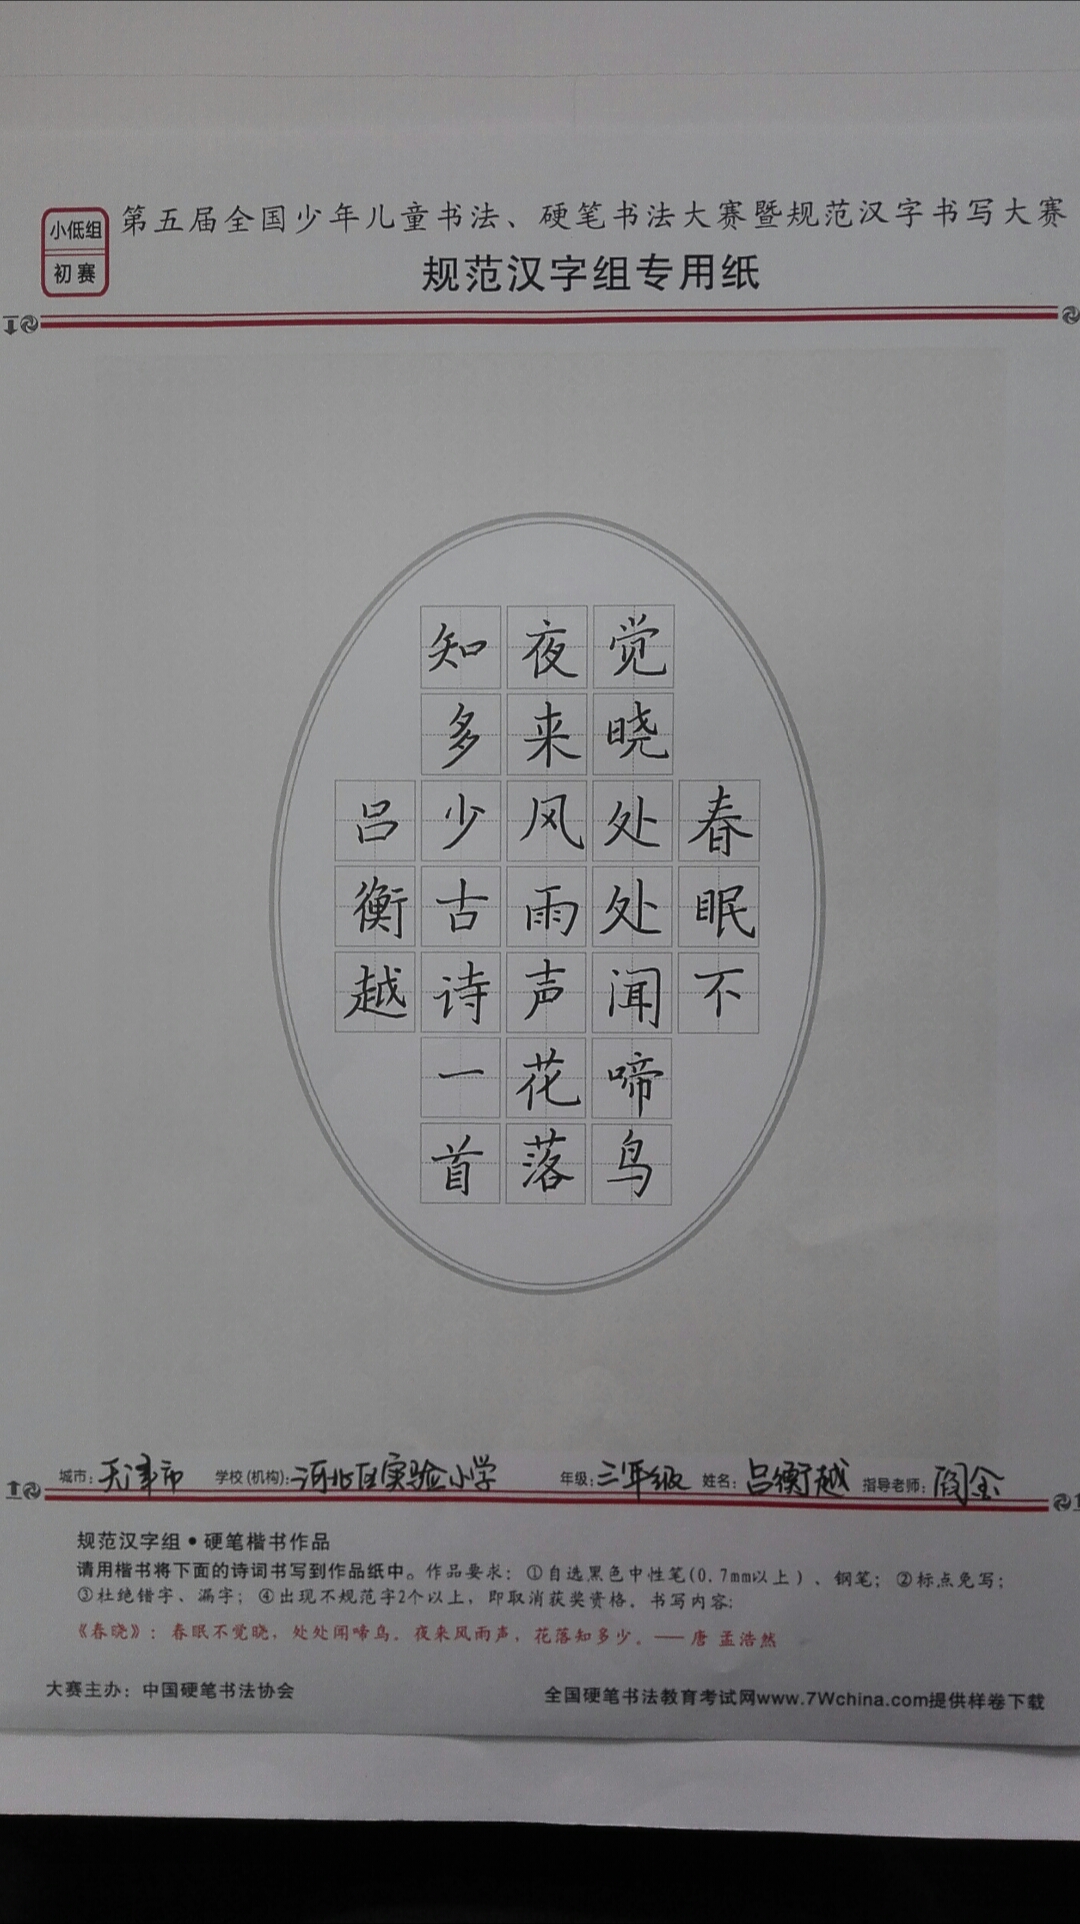 小低组
初赛
第五届全国少年儿童书法、硬笔书法大赛暨规范汉字书写大赛
规范汉字组专用纸
春眠不
觉晓处处闻啼鸟
夜来风雨声花落
知多少古诗一首
吕衡越
城市：天津市 学校(机构)：河北区实验小学 年级：三年级 姓名：吕衡越 指导老师：阎金
规范汉字组•硬笔楷书作品
请用楷书将下面的诗词书写到作品纸中。作品要求：①自选黑色中性笔(0.7mm以上)、钢笔；②标点免写；
③杜绝错字、漏字；④出现不规范字2个以上，即取消获奖资格。书写内容：
《春晓》：春眠不觉晓，处处闻啼鸟。夜来风雨声，花落知多少。——唐 孟浩然
大赛主办：中国硬笔书法协会
全国硬笔书法教育考试网www.7Wchina.com提供样卷下载